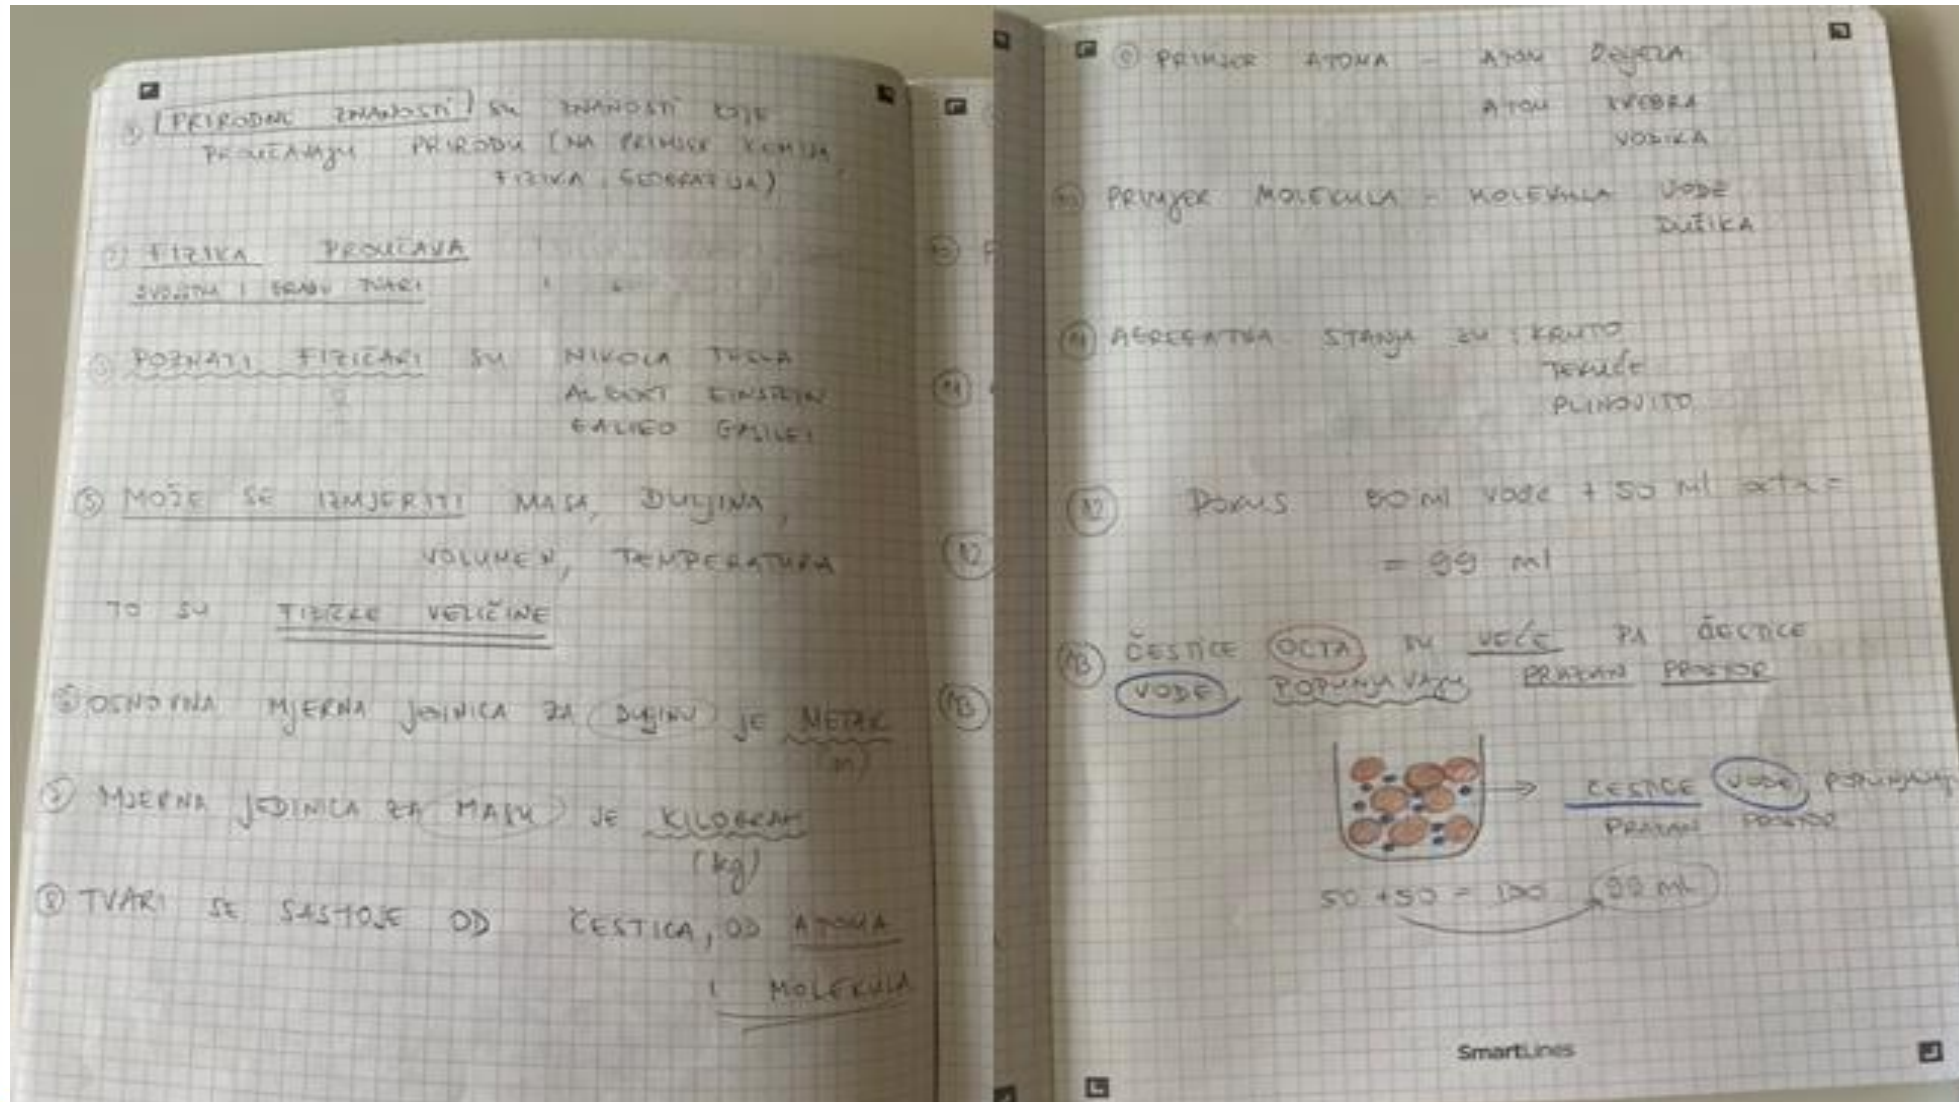 1) PRIRODNE ZNANOSTI SU ZNANOSTI KOJE
PROUČAVAJU PRIRODU (NA PRIMJER KEMIJA,
FIZIKA, GEOGRAFIJA)
2) FIZIKA PROUČAVA
SVOJSTVA I GRAĐU TVARI
3) POZNATI FIZIČARI SU NIKOLA TESLA
ALBERT EINSTEIN
GALILEO GALILEI
5) MOŽE SE IZMJERITI MASA, DULJINA,
VOLUMEN, TEMPERATURA
TO SU FIZIČKE VELIČINE
6) OSNOVNA MJERNA JEDINICA ZA DULJINU JE METAR
(m)
7) MJERNA JEDINICA ZA MASU JE KILOGRAM
(kg)
8) TVARI SE SASTOJE OD ČESTICA, OD ATOMA
I MOLEKULA
9) PRIMJER ATOMA - ATOM
ATOM SREBRA
VODIKA
10) PRIMJER MOLEKULA - MOLEKULA VODE
DUŠIKA
11) AGREGATNA STANJA SU: KRUTO
TEKUĆE
PLINOVITO
12) POKUS 50 ml vode + 50 ml octa =
= 99 ml
13) ČESTICE OCTA SU VEĆE PA ČESTICE
VODE POPUNJAVAJU PRAZAN PROSTOR
ČESTICE VODE POPUNJAVAJU
PRAZAN PROSTOR
50 + 50 = 100 99 ml
SmartLines